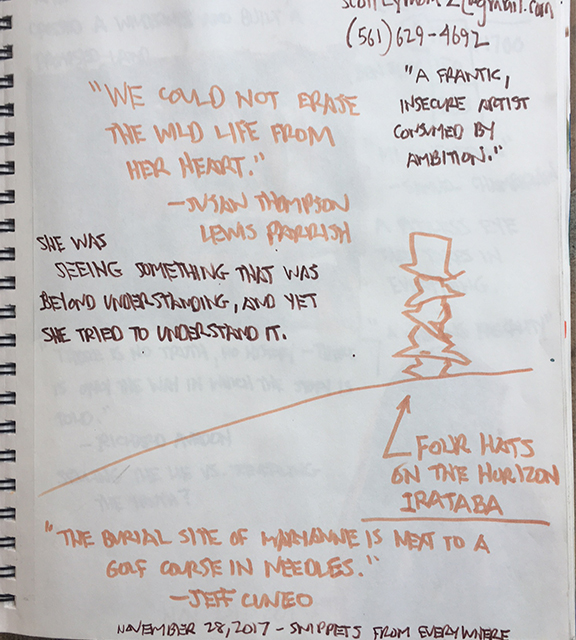 (561) 629-4692
"A FRANTIC,
INSECURE ARTIST
CONSUMED BY
AMBITION."
"WE COULD NOT ERASE
THE WILD LIFE FROM
HER HEART."
—SUSAN THOMPSON
LEWIS PARRISH
SHE WAS
SEEING SOMETHING THAT WAS
BEYOND UNDERSTANDING, AND YET
SHE TRIED TO UNDERSTAND IT.
FOUR HATS
ON THE HORIZON
IRATABA
"THE BURIAL SITE OF MARYANNE IS NEXT TO A
GOLF COURSE IN NEEDLES."
—JEFF CUNEO
NOVEMBER 28, 2017 - SNIPPETS FROM EVERYWHERE